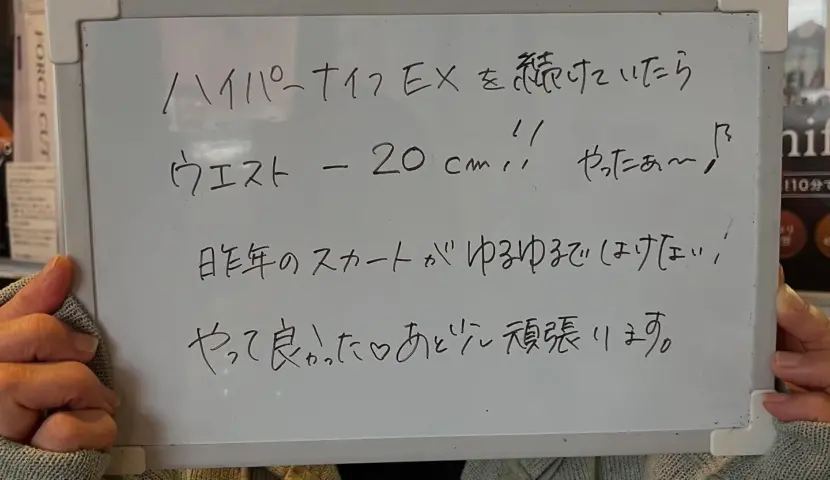 FORCE CUT
ハイパーナイフEXを続けていたら
ウエスト −20cm!! やったぁ〜!
昨年のスカートがゆるゆるではけない!
やって良かった♡あと少し頑張ります。
110分で